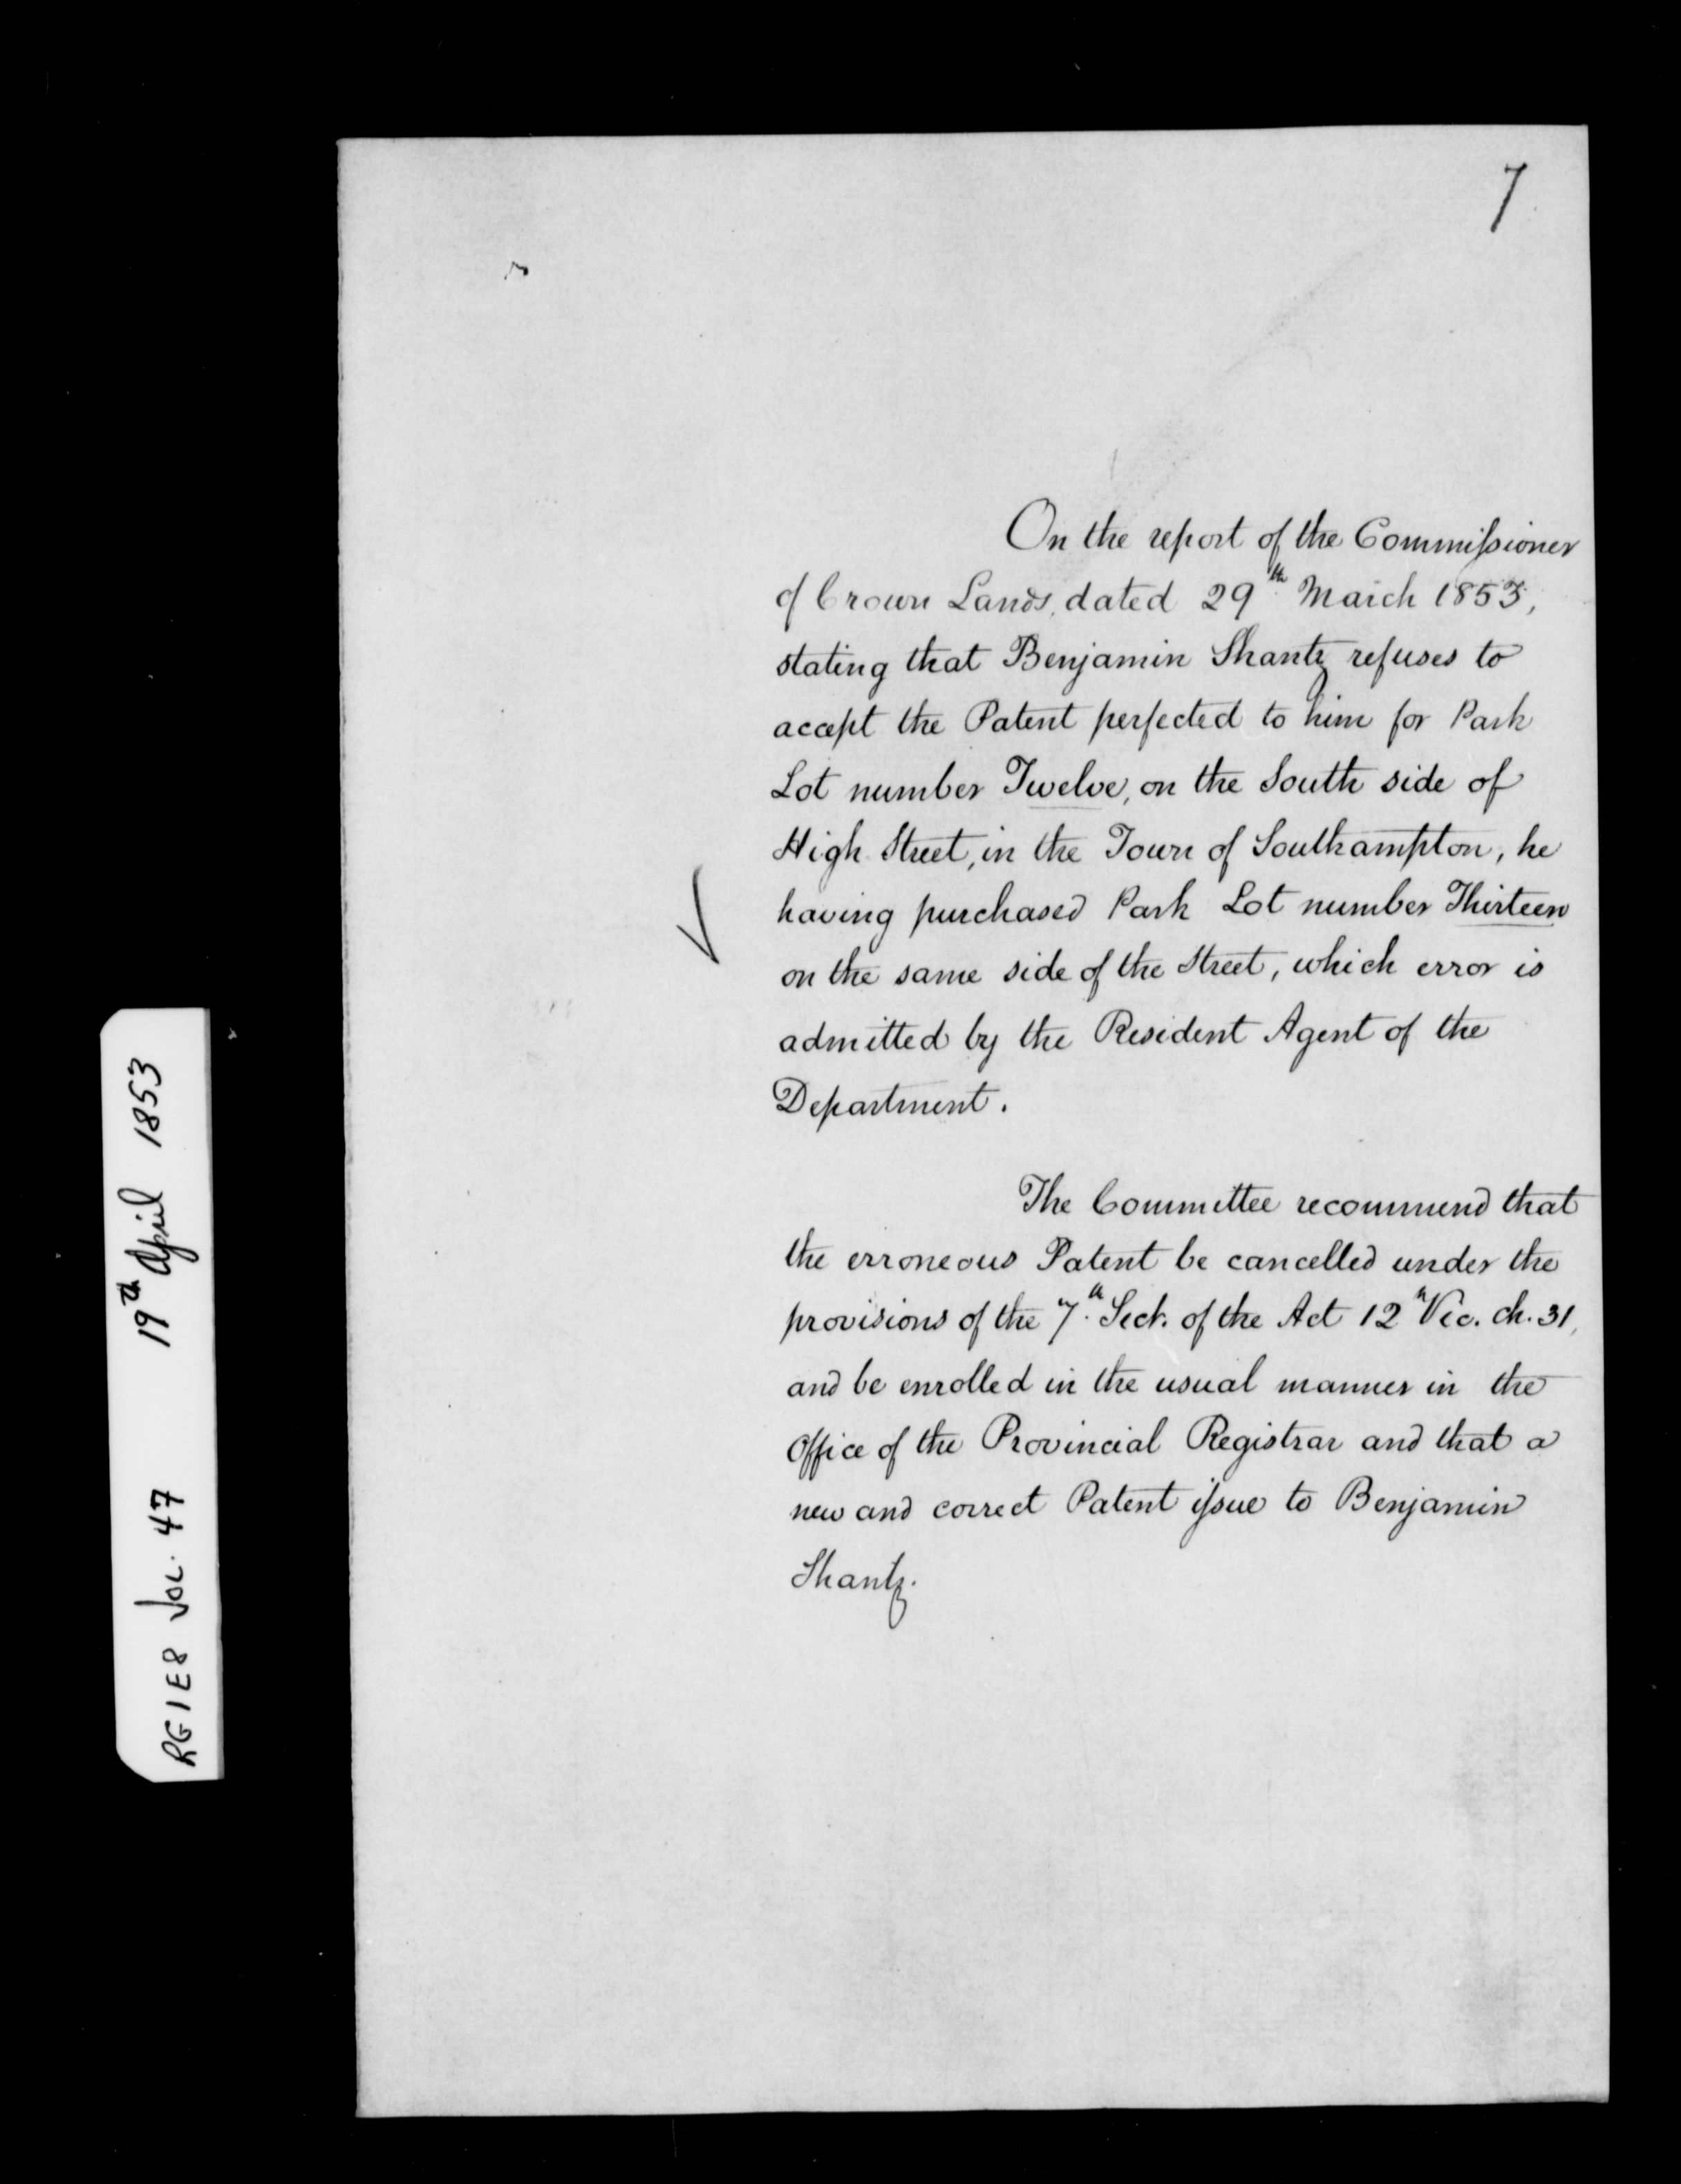 7
On the report of the Commissioner
of Crown Lands, dated 29th March 1853,
stating that Benjamin Shantz refuses to
accept the Patent perfected to him for Park
Lot number Twelve, on the South side of
High Street, in the Town of Southampton, he
having purchased Park Lot number Thirteen
on the same side of the Street, which error is
admitted by the Resident Agent of the
Department.
The Committee recommend that
the erroneous Patent be cancelled under the
provisions of the 7th. Sect. of the Act 12th Vic. ch. 31,
and be enrolled in the usual manner in the
Office of the Provincial Registrar and that a
new and correct Patent issue to Benjamin
Shantz.
RG1E8 Vol. 47 19th April 1853